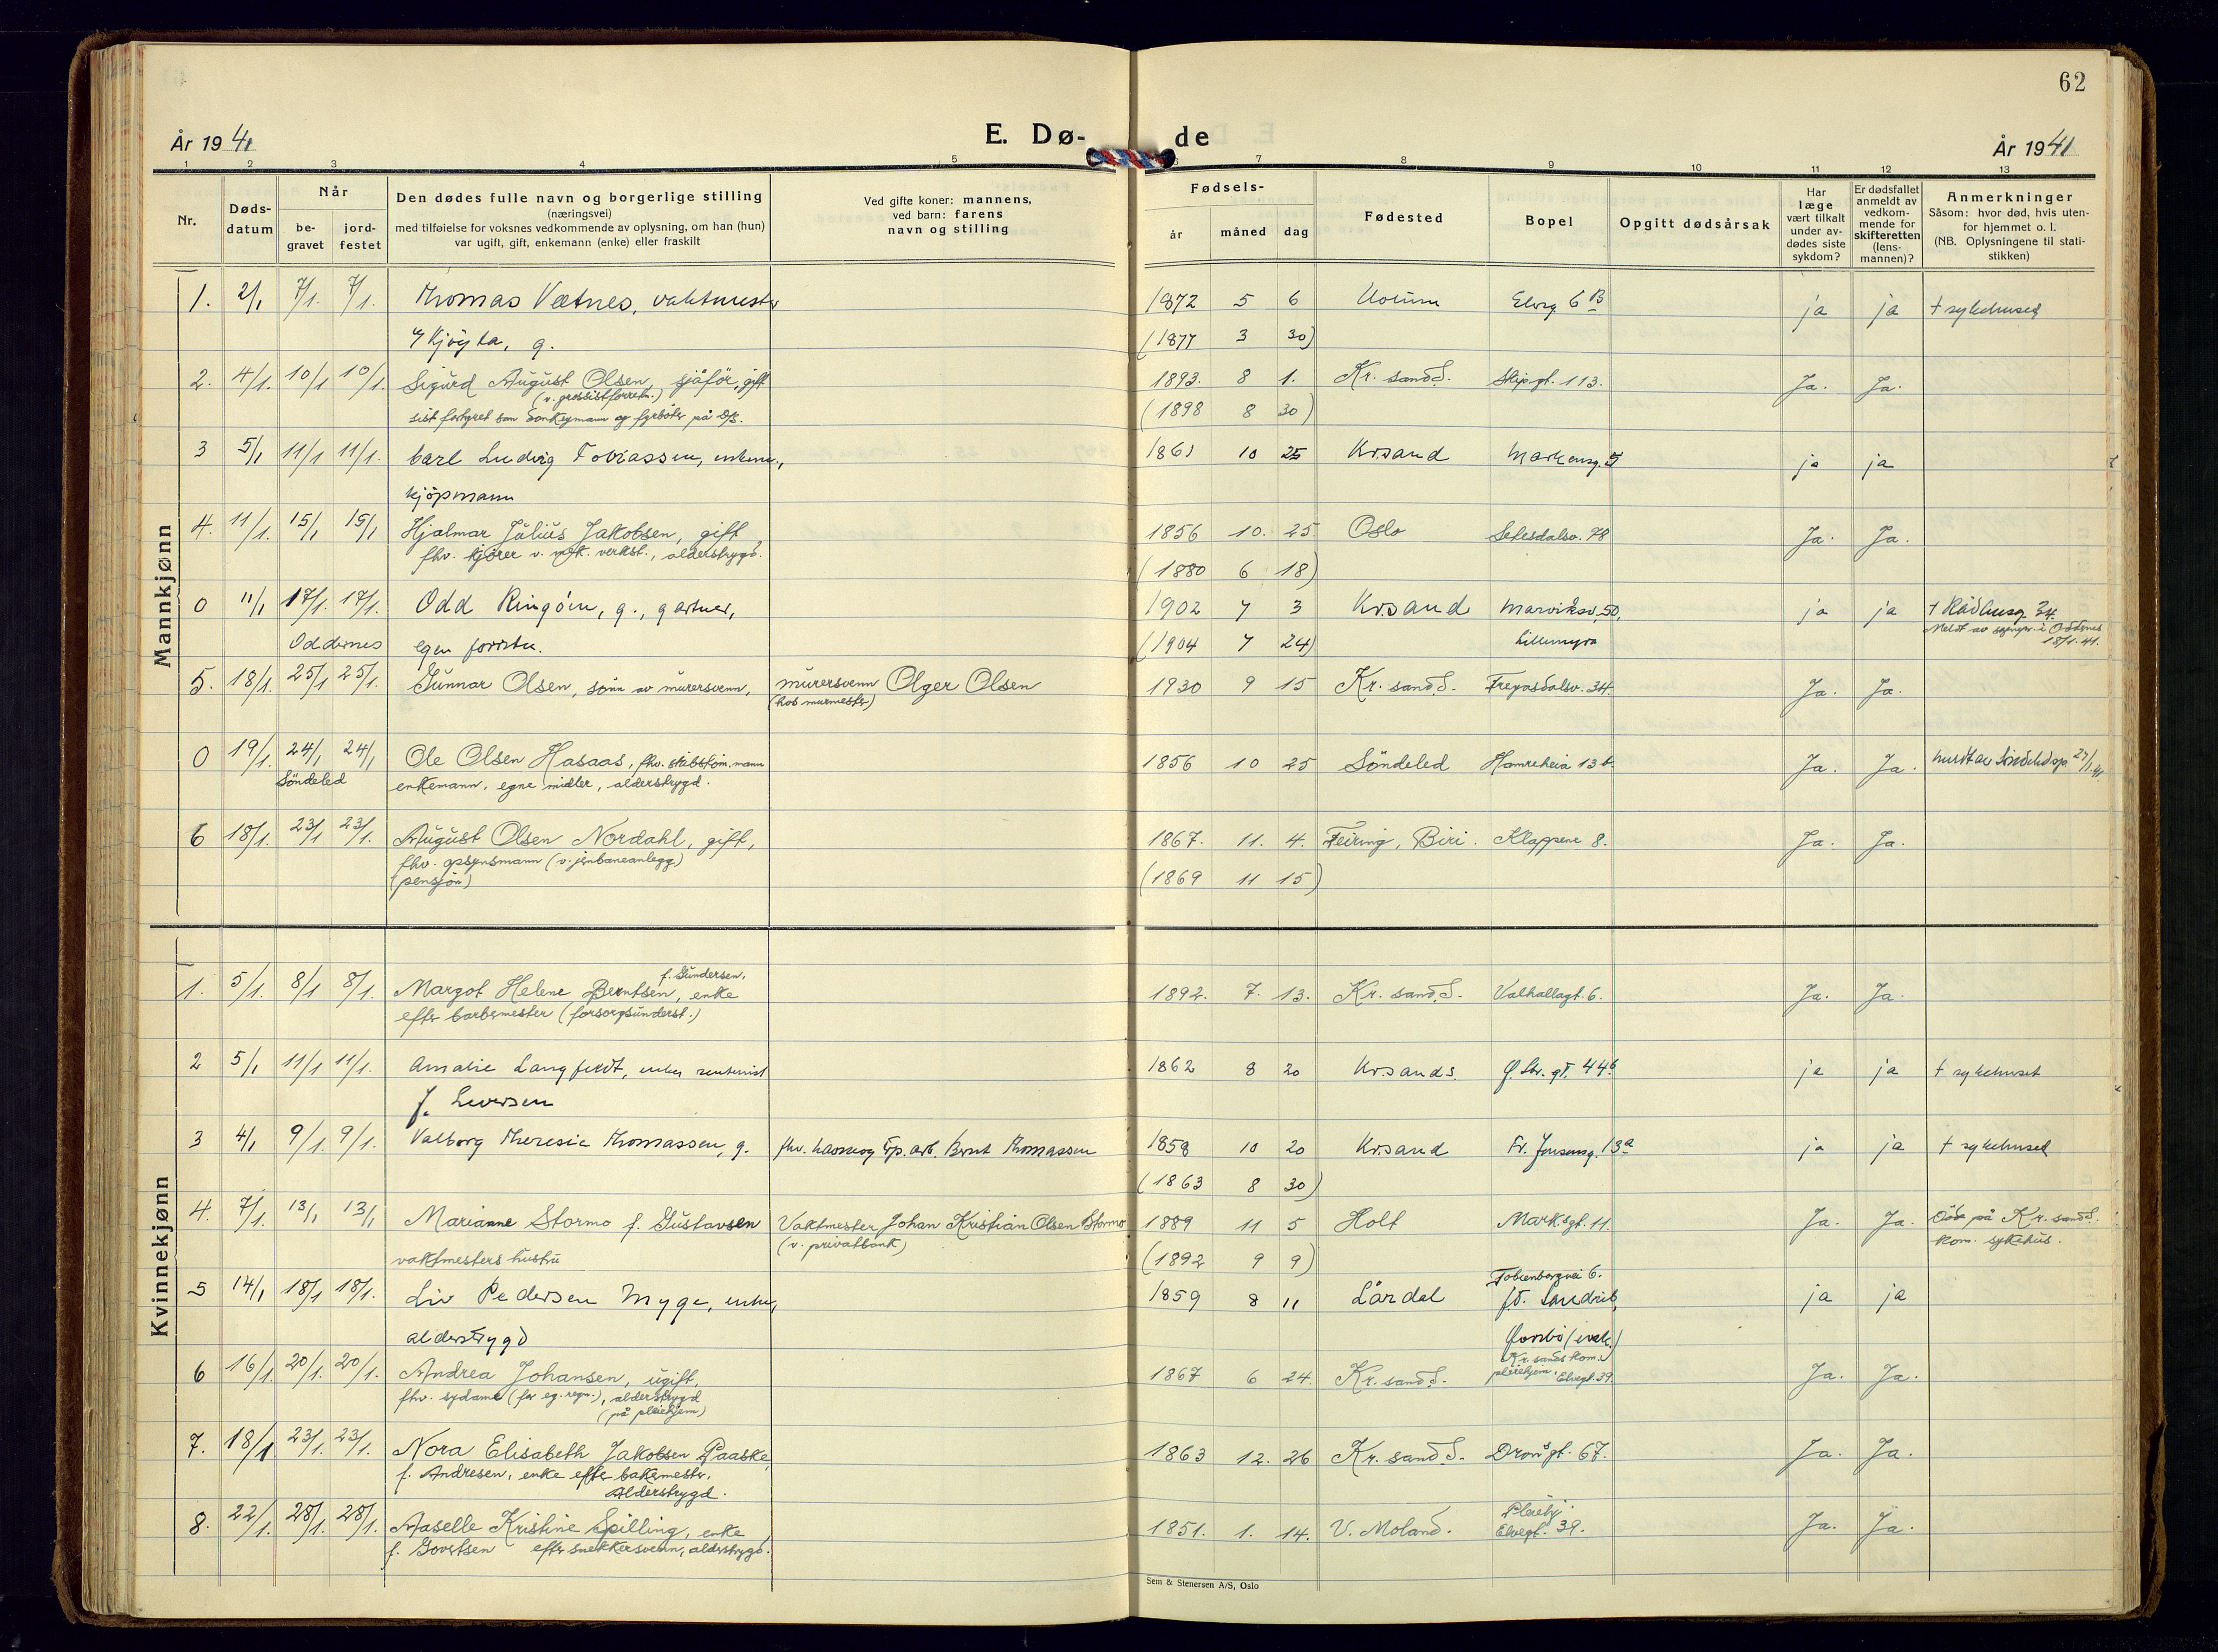 62
År 1941
E. Dø-
de
År 1941
1 2 3 4 5
6 7 8 9 10 11 12 13
Nr.
Døds-
datum
Når
be-
gravet
jord-
festet
Den dødes fulle navn og borgerlige stilling
(næringsvei)
med tilføielse for voksnes vedkommende av oplysning, om han (hun)
var ugift, gift, enkemann (enke) eller fraskilt
Ved gifte koner: mannens,
ved barn: farens
navn og stilling
Fødsels-
år måned dag
Fødested
Bopel
Opgitt dødsårsak
Har
læge
vært tilkalt
under av-
dødes siste
sykdom?
Er dødsfallet
anmeldt av
vedkom-
mende for
skifteretten
(lens-
mannen)?
Anmerkninger
Såsom: hvor død, hvis uten-
for hjemmet o. l.
(NB. Oplysningene til stati-
stikken)
Mannkjønn
1. 2/1 7/1. 7/1. Thomas Vætnes, vaktmester 1872 5 6 Elvegt 6 B ja ja † sykehuset
g. (1877 3 30)
2. 4/1. 10/1 10/1. Sigurd August Olsen, sjåför, gift 1893. 8 1. Kr. sand S. Skipgt. 113. Ja. Ja.
(v. grossistforretn.) (1898 8 30)
sist forhyret som Donkeymann og fyrbøter på D/S.
3 5/1 11/1 11/1. Carl Ludvig Tobiassen, enkem., 1861 10 25 Krsand Markensg. 5 ja ja
kjöpmann
4. 11/1. 15/1 15/1 Hjalmar Julius Jakobsen, gift, 1856 10. 25. Oslo Setesdalsv. 78 Ja. Ja.
fhv. kjörer v. mek. verkst., alderstrygd. (1880 6 18)
0 11/1 17/1. 17/1. Odd Ringöen, g., gartner, 1902 7 3 Krsand Marviksv. 50, ja ja † Rådhusg. 34.
Oddernes egen forretn. (1904 7 24) Lillemyra Meldt av sognepr. i Oddernes
18/1.41.
5. 18/1. 25/1 25/1. Gunnar Olsen, sönn av murersvenn, murersvenn Olger Olsen 1930 9 15 Kr. sand S. Tregasdalsv. 34. Ja. Ja.
(hos murmester)
0 19/1. 24/1 24/1 Ole Olsen Hasaas, fhv. skibstöm.mann 1856 10 25 Söndeled Hamreheia 13 b. Ja. Ja.
Söndeled enkemann, egne midler, alderstrygd.
6 18/1. 23/1 23/1. August Olsen Nordahl, gift, 1867. 11. 4. Feiring, Biri. Klappene 8. Ja. Ja.
fhv. opsynsmann (v. jernbaneanlegg) (1869 11 15)
(pensjon)
Kvinnekjønn
f. Gundersen,
1. 5/1. 8/1 8/1. Margot Helene Berntsen, enke 1892. 7. 13. Kr. sand S. Valhallagt. 6. Ja. Ja.
efter barbermester (forsorgsunderst.)
2 5/1 11/1 11/1. Amalie Langfeldt, enke, rentenist 1862 8 20 Krsand S. Ø. Str. gt. 44 b ja ja † sykehuset
f. Iversen
3 4/1 9/1. 9/1. Valborg Theresie Thomassen, g. fhv. Bernt Thomassen 1858 10 20 Krsand Fr. Jensensg. 13 a ja ja † sykehuset
(1863 8 30)
4. 7/1. 13/1 13/1 Marianne Stormo f. Gustavsen Vaktmester Johan Kristian Olsen Stormo 1889 11 5 Holt Marksgt. 11. Ja. Ja. Död på Kr. sand S.
vaktmesters hustru (v. privatbank) (1892 9 9) kom. sykehus.
5 14/1 18/1 18/1. Liv Pedersen Myge, enke, 1859 8 11 Lårdal Tobienborgvei 6. ja ja
alderstrygd
6 16/1. 20/1. 20/1. Andrea Johansen, ugift, 1867 6 24. Kr. sand S. Kr. sands kom. pleiehjem. Elvegt. 39. Ja. Ja.
fhv. sydame (for eg. regn.), alderstrygd
(på pleiehjem)
7. 18/1 23/1. 23/1. Nora Elisabeth Jakobsen Paaske, 1863 12. 26 Kr. sand S. Dronsgt. 67. Ja. Ja.
f. Andresen, enke efter bakermester,
Alderstrygd.
8. 22/1. 28/1. 28/1. Aaselle Kristine Spilling, enke 1851. 1. 14. V. Moland. Pleiehj. Elvegt. 39. Ja. Ja.
f. Govertsen efter snekkersvenn, alderstrygd.
Sem & Stenersen A/S, Oslo